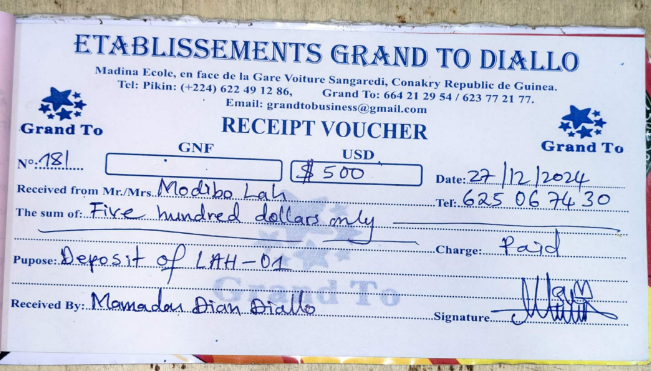 ETABLISSEMENTS GRAND TO DIALLO
Madina Ecole, en face de la Gare Voiture Sangaredi, Conakry Republic de Guinea.
Tel: Pikin: (+224) 622 49 12 86, Grand To: 664 21 29 54 / 623 77 21 77.
Email: grandtobusiness@gmail.com
Grand To
RECEIPT VOUCHER
Grand To
GNF USD
No: 181 $ 500 Date: 27/12/2024
Received from Mr./Mrs. Modibo Lah Tel: 625 06 74 30
The sum of: Five hundred dollars only
Charge: Paid
Pupose: Deposit of LAH-01
Grand To
Received By: Mamadou Dian Diallo
Signature